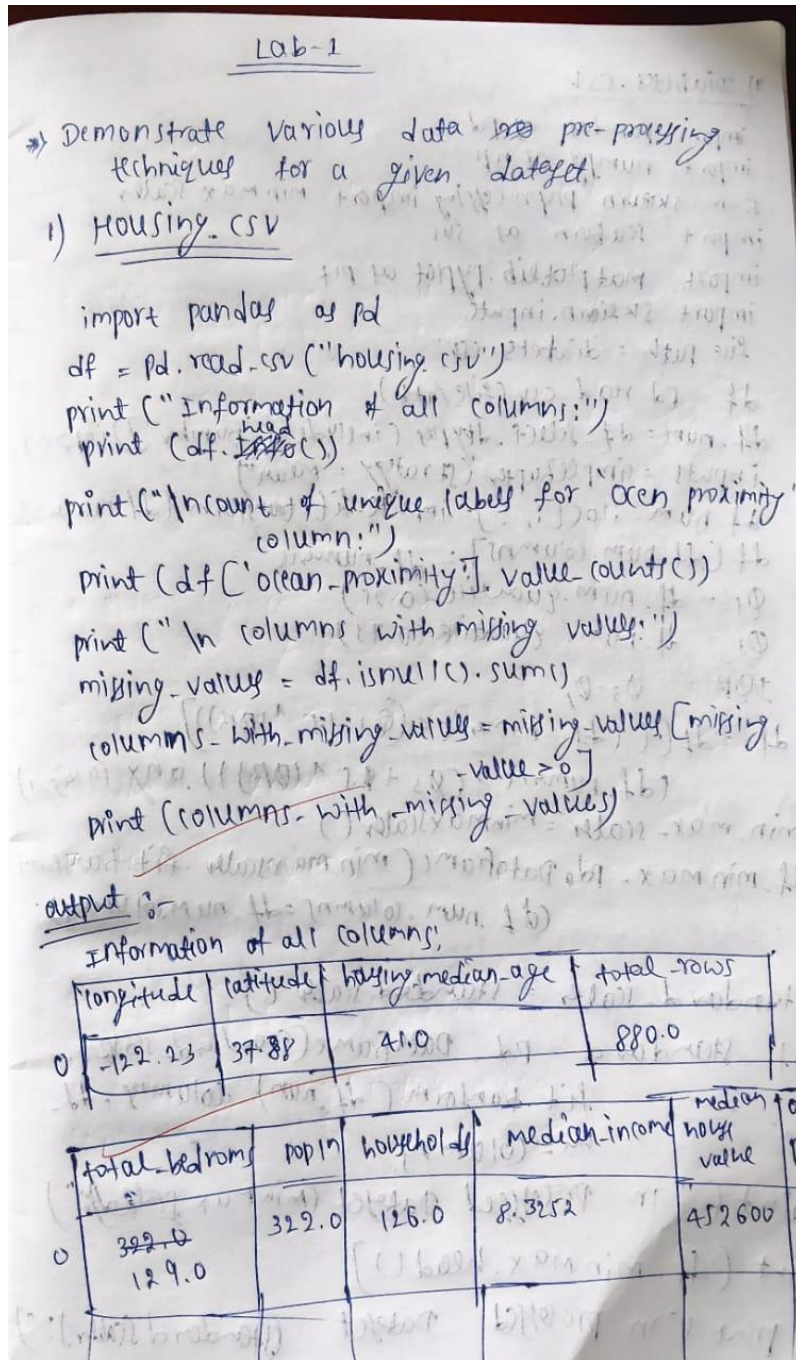 Lab-1
*) Demonstrate various data pre-processing
techniques for a given dataset.
1) Housing.csv
import pandas as pd
df = pd.read_csv ("housing.csv")
print ("Information of all columns:")
print (df.head())
print ("\ncount of unique labels for ocen proximity
column:")
print (df['ocean_proximity']. value_counts())
print ("\n columns with missing values:")
missing_values = df.isnull().sum()
columns_with_missing_values = missing_values [missing
-value >0]
print (columns_with_missing_values)
output :-
Information of all columns:
longitude latitude housing_median_age total_rows
0 -122.23 37.88 41.0 880.0
total_bedroms popln households median_income median house value
0 322.0 129.0 322.0 126.0 8.3252 452600